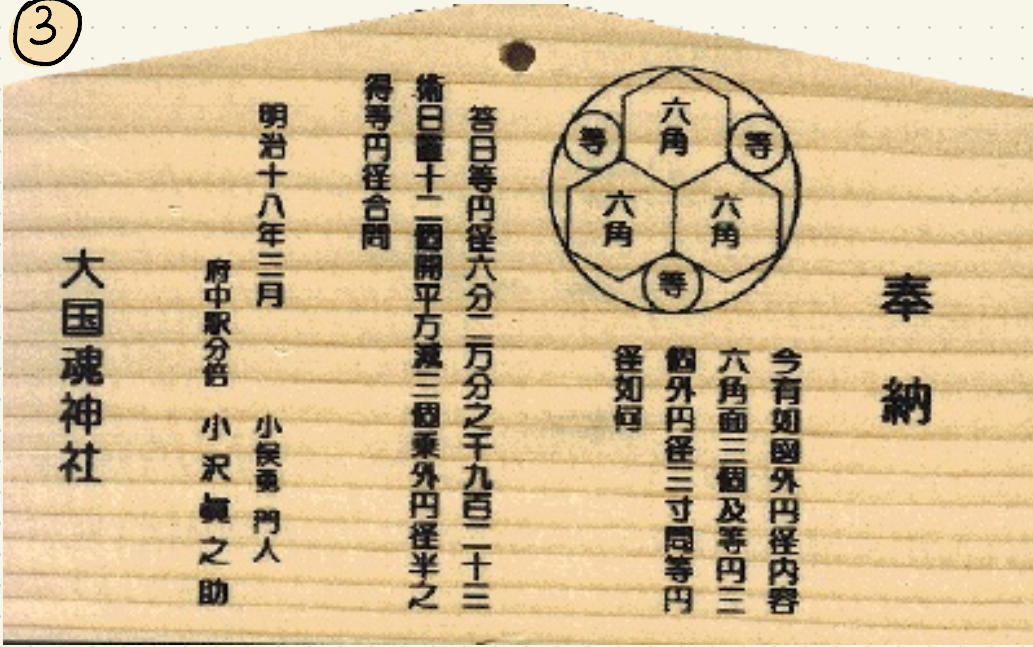 ③
奉納
六角
等
等
六角
六角
等
今有如圖外円径内容
六角面三個及等円三
個外円径三寸問等円
径如何
答曰等円径六分二万分之千九百二十三
術曰置十二個開平方減三個乗外円径半之
得等円径合問
明治十八年三月
小俣勇 門人
府中駅分倍 小沢眞之助
大国魂神社